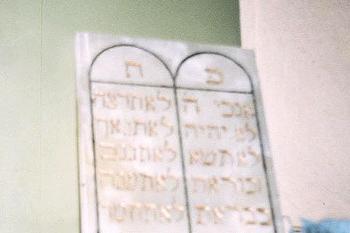 אנכי ה'
לא יהיה
לא תשא
זכור את
לא תרצח
לא תנאף
לא תגנב
לא תענה
לא תחמד